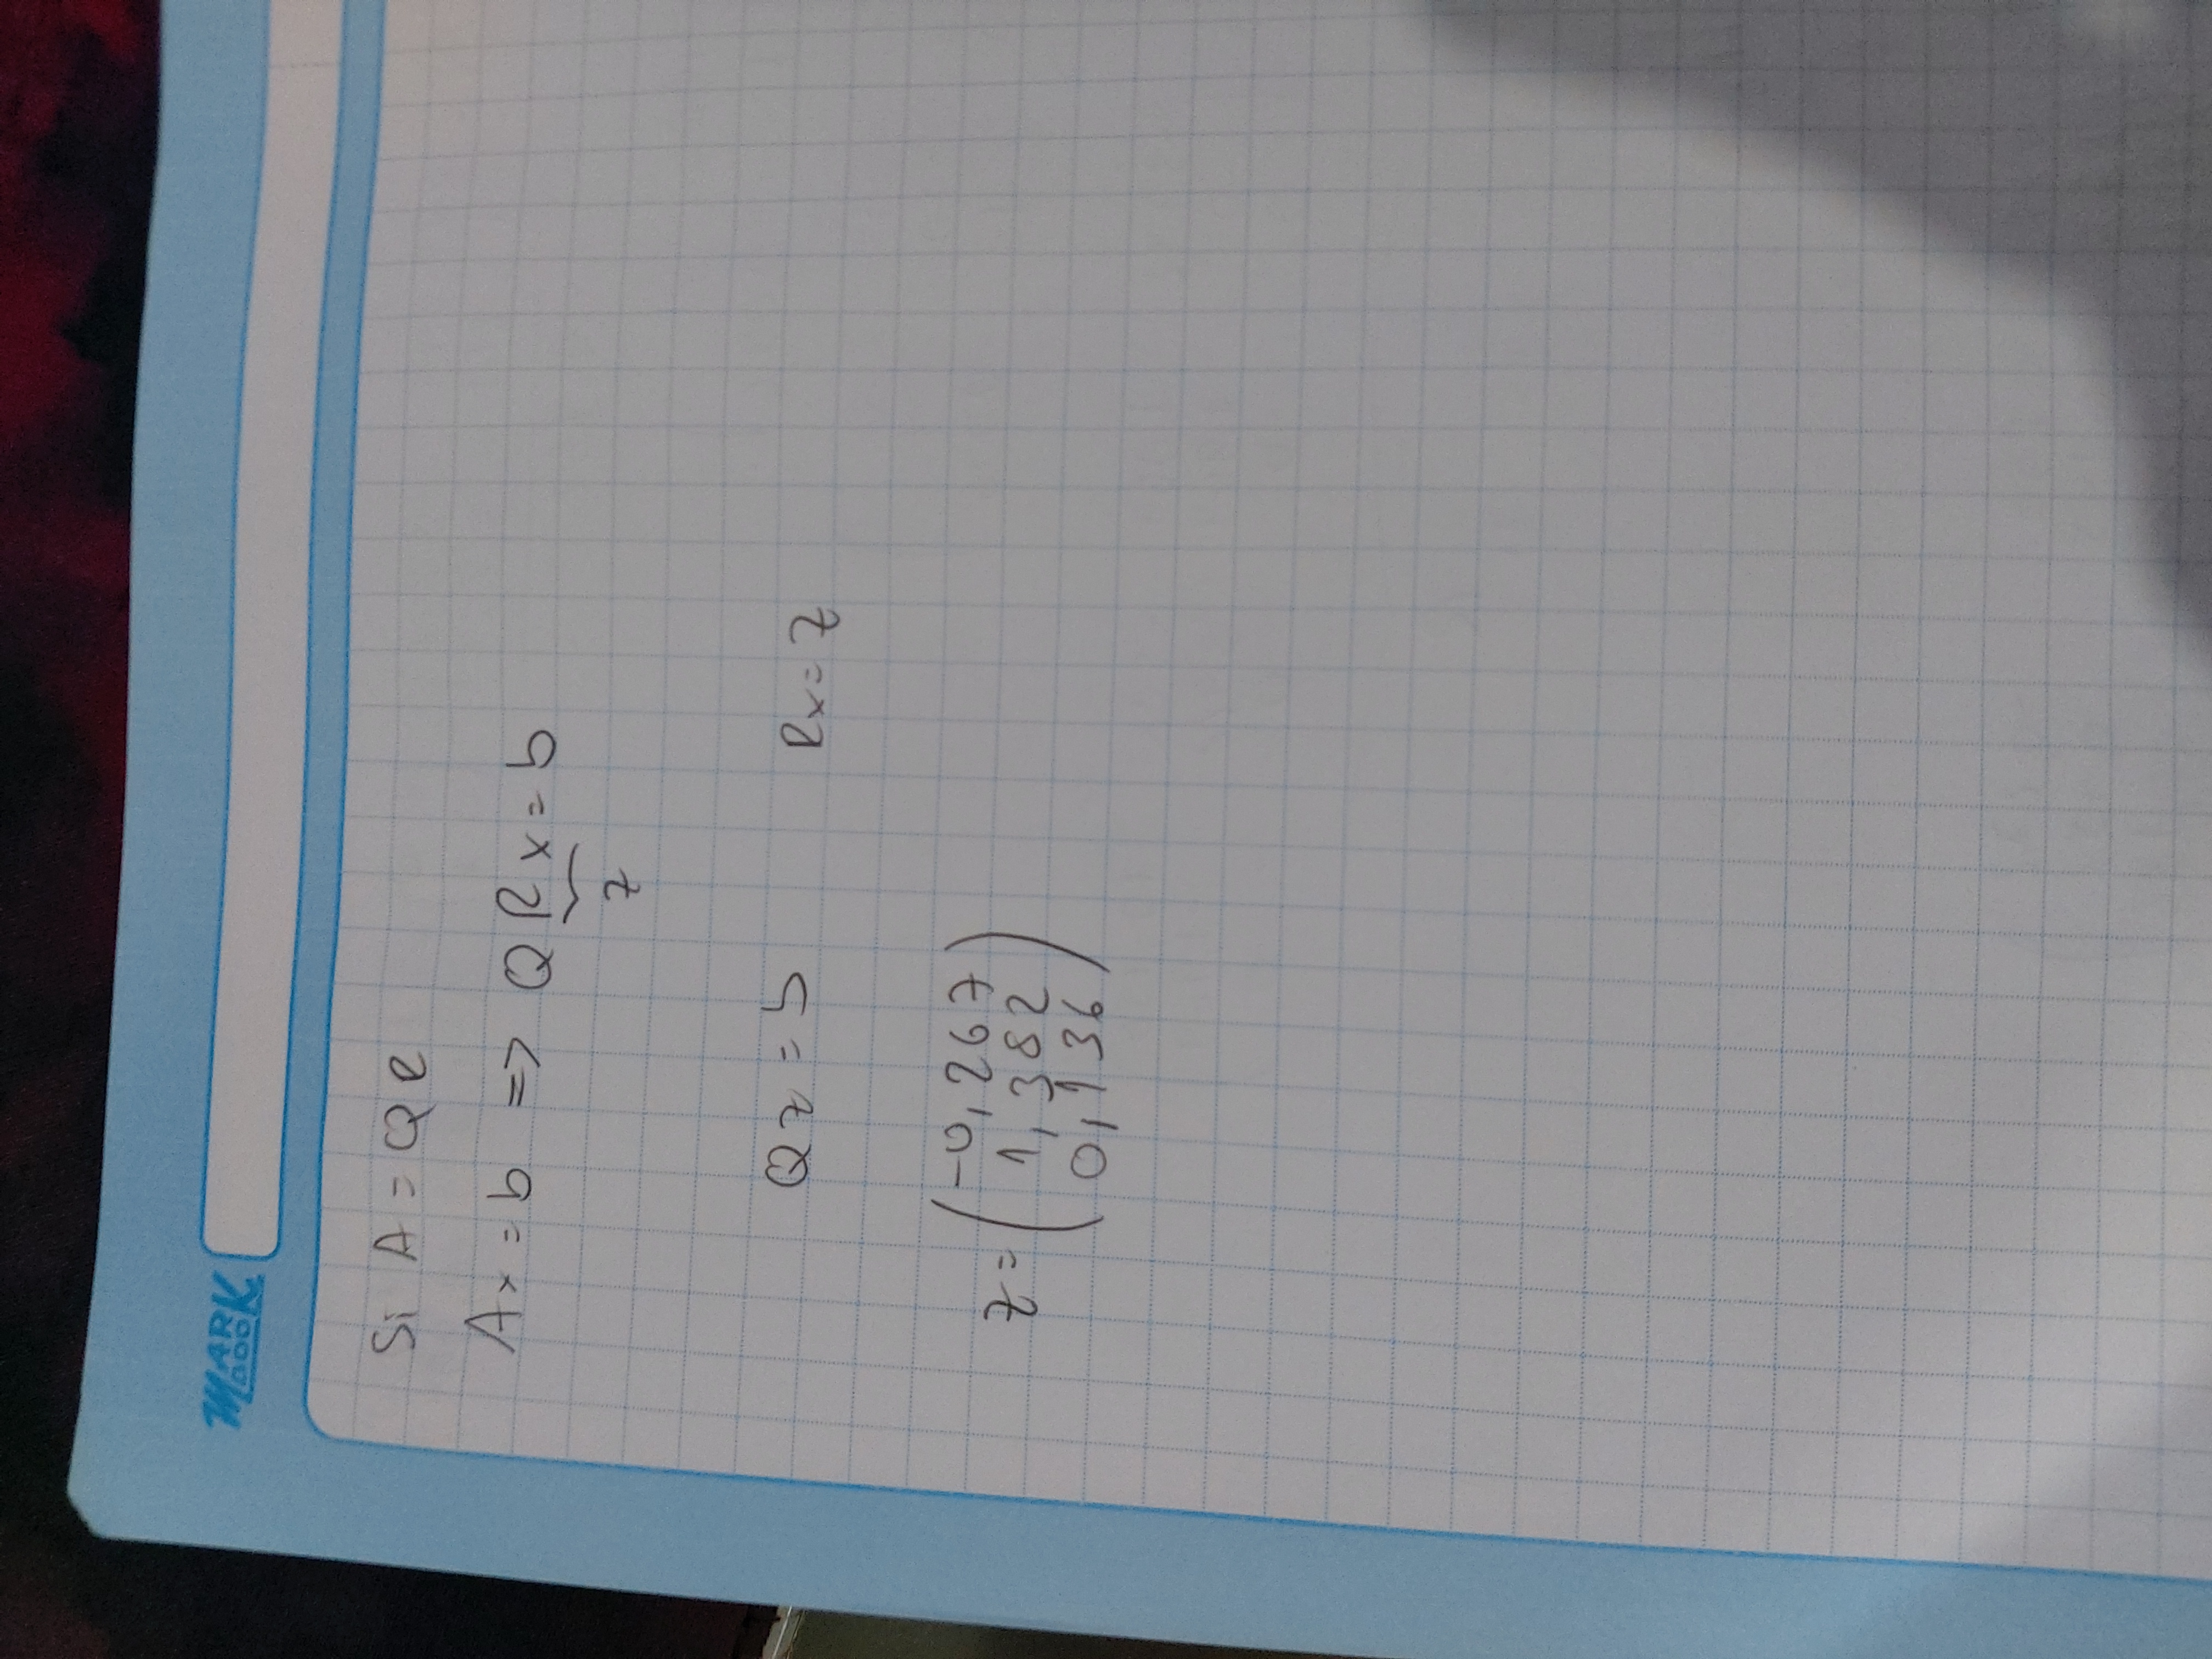 MARK BOOK
Si A = QR
Ax = b => QRx = b
z
Qz = b Rx = z
z = (-0,267
1,382
0,136)